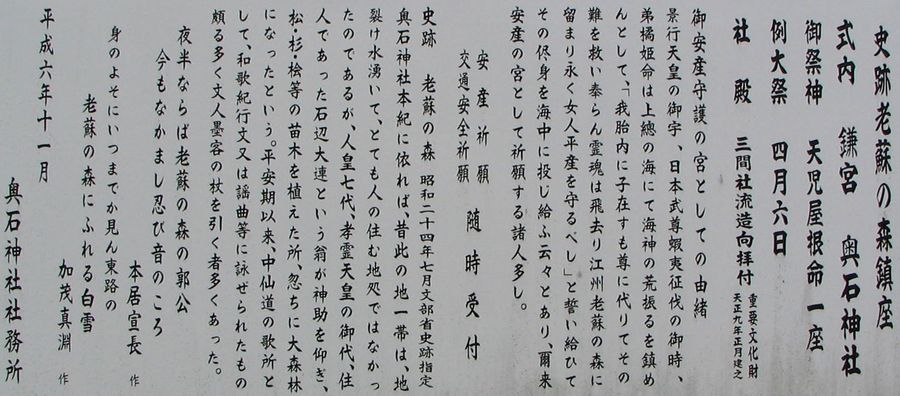 史跡老蘇の森鎮座
式内　鎌宮　奥石神社
御祭神　天児屋根命一座
例大祭　四月六日
社殿　三間社流造向拝付　重要文化財
天正九年正月建之
御安産守護の宮としての由緒
景行天皇の御宇、日本武尊蝦夷征伐の御時、
弟橘姫命は上總の海にて海神の荒振るを鎮め
んとして、「我胎内に子在すも尊に代りてその
難を救い奉らん霊魂は飛去り江州老蘇の森に
留まり永く女人平産を守るべし」と誓い給ひて
その侭身を海中に投じ給ふ云々とあり、爾来
安産の宮として祈願する諸人多し。
安産祈願
交通安全祈願　随時受付
史跡　老蘇の森　昭和二十四年七月文部省史跡指定
奥石神社本紀に依れば、昔此の地一帯は、地
裂け水湧いて、とても人の住む地処ではなかっ
たのであるが、人皇七代、孝霊天皇の御代、住
人であった石辺大連という翁が神助を仰ぎ、
松・杉・桧等の苗木を植えた所、忽ちに大森林
になったという。平安期以来、中仙道の歌所と
して、和歌紀行文又は謡曲等に詠ぜられたもの
頗る多く文人墨客の杖を引く者多くあった。
夜半ならば老蘇の森の郭公
今もなかまし忍び音のころ
本居宣長　作
身のよそにいつまでか見ん東路の
老蘇の森にふれる白雪
加茂真淵　作
平成六年十一月
奥石神社社務所